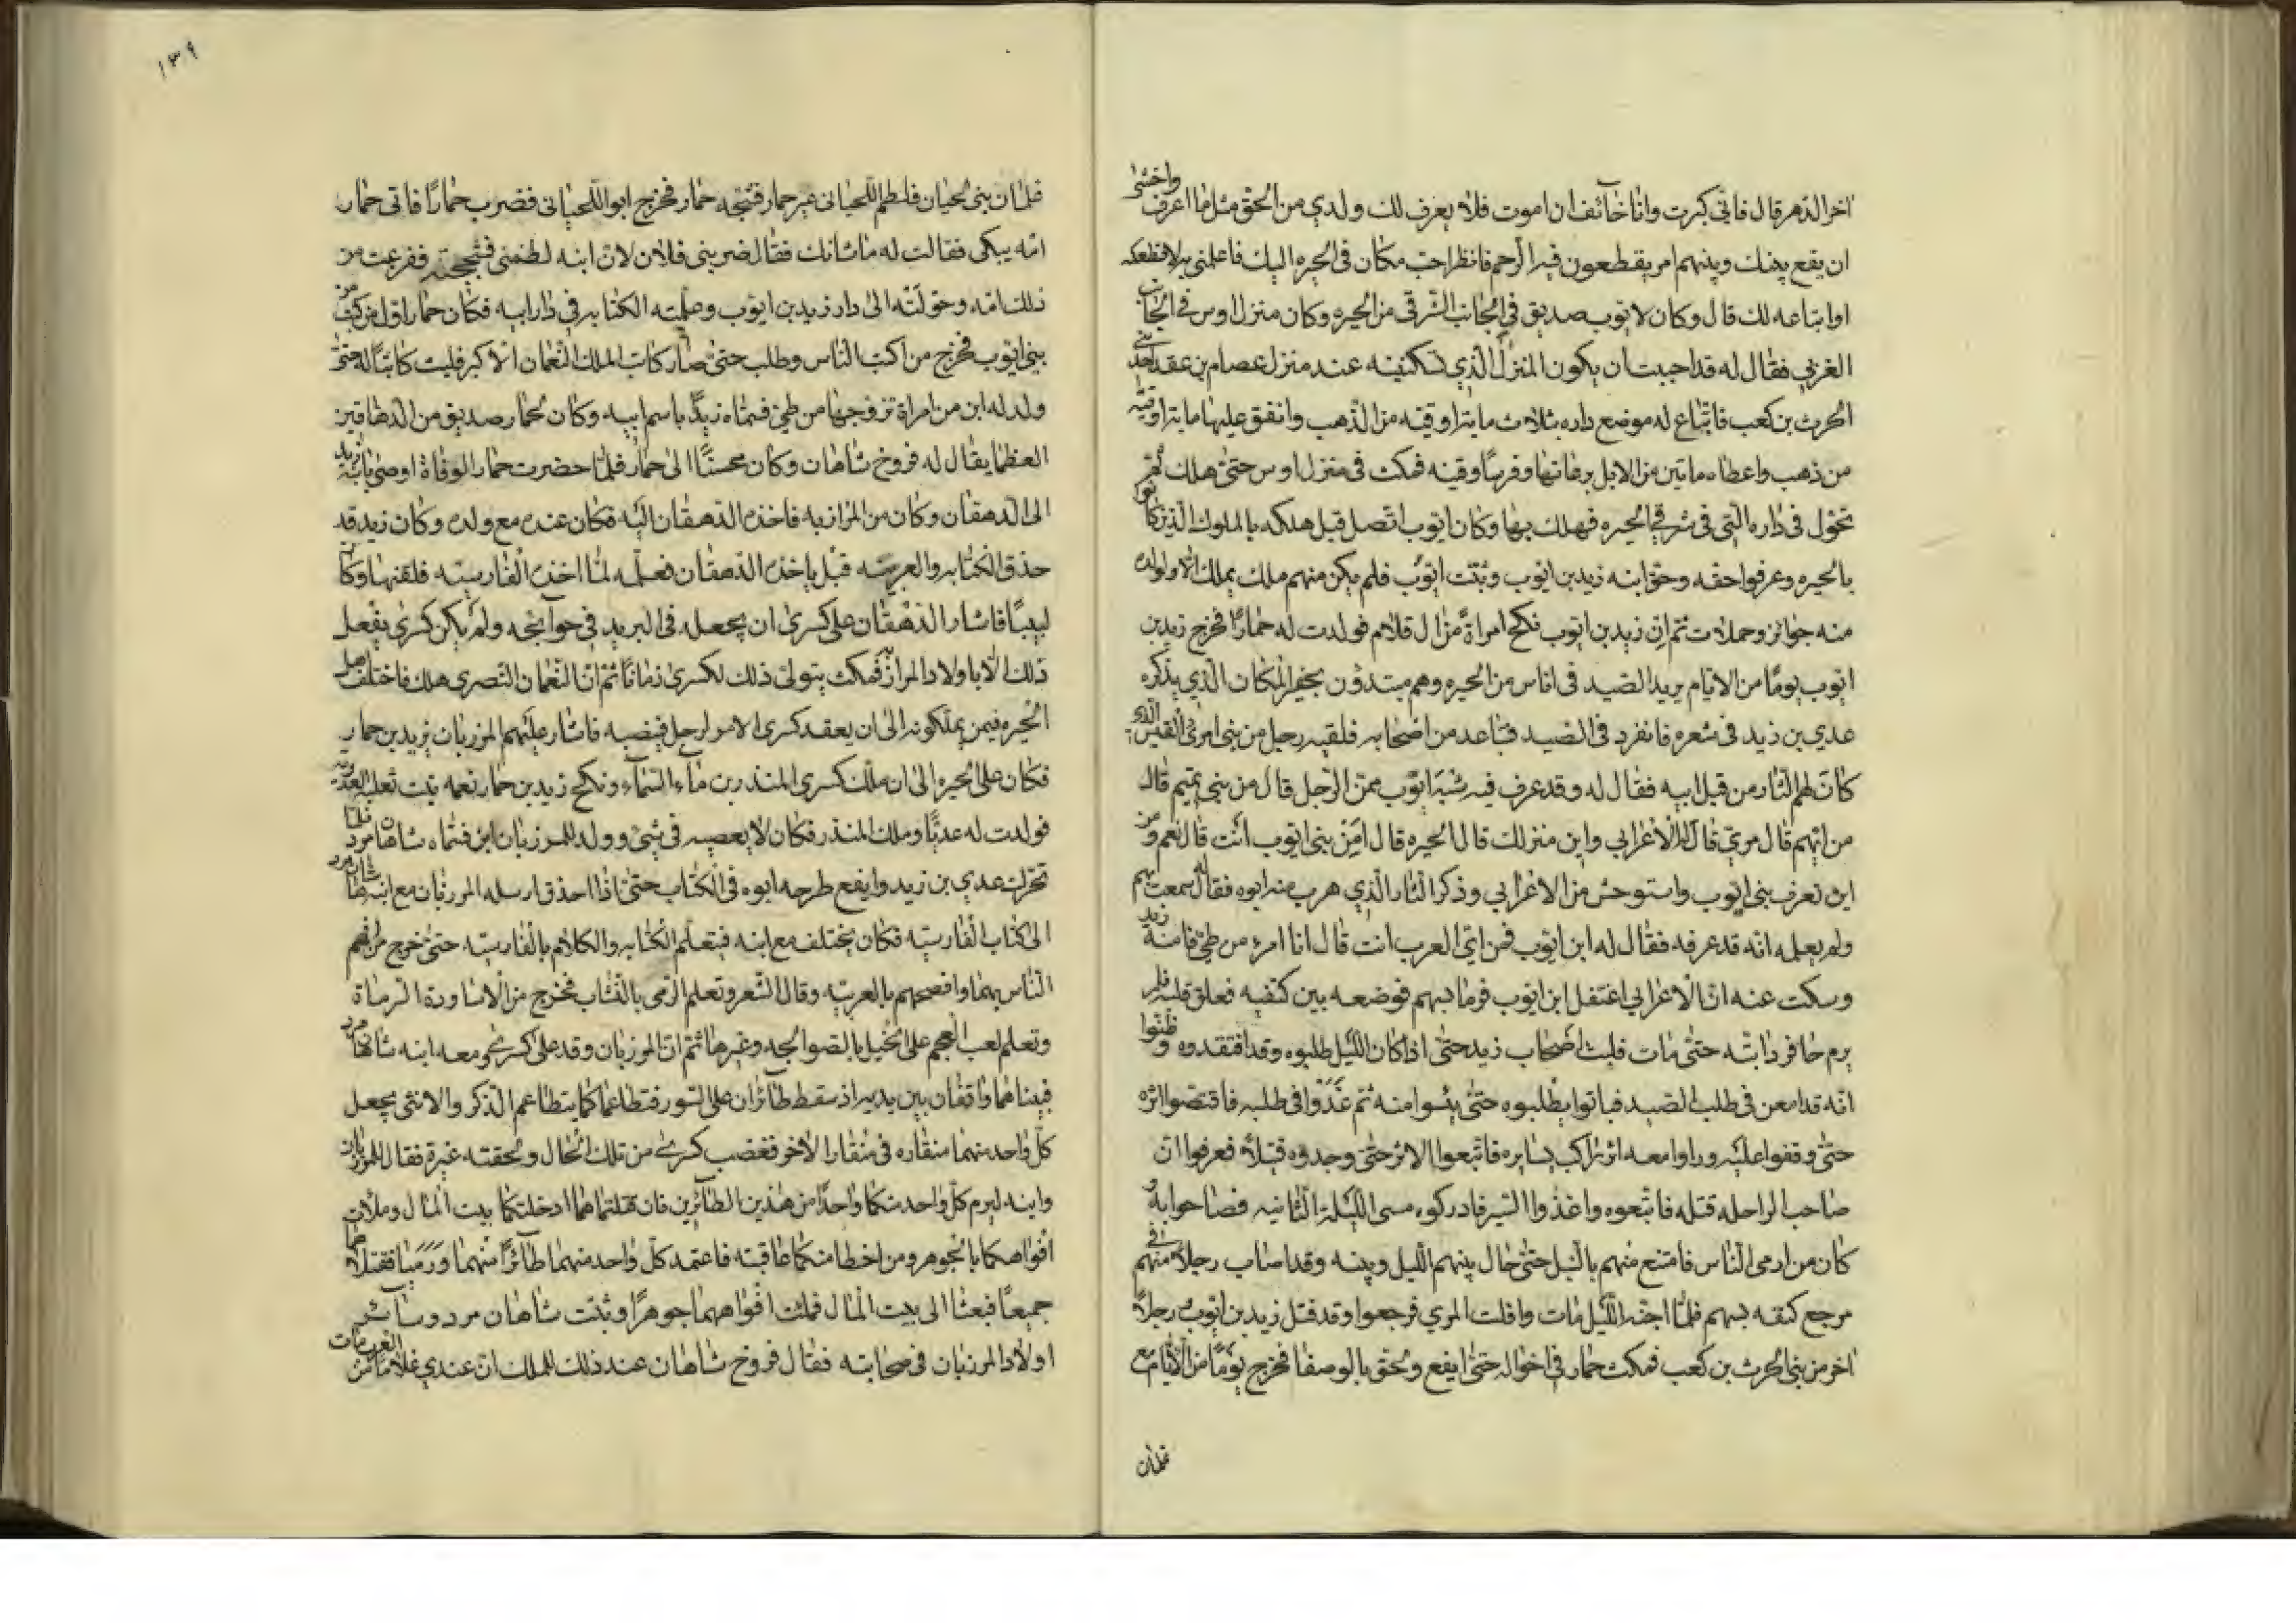 اخر الدهر قال فاني كبرت وانا خائف ان اموت فلا يعرف لك ولدي من الحق مثل ما اعرف واخشى
ان يقع بينك وبينهم امر يقطعون فيه الرحم فانظر احب مكان في الحيره اليك فاعلمني به لاقطعكه
او ابتاعه لك قال وكان لايوب صديق في الجانب الشرقي من الحيره وكان منزل اوس في الجانب
الغربي فقال له قد احببت ان يكون المنزل الذي تسكنيه عند منزل عصام بن عقده احد بني
الحرث بن كعب فابتاع له موضع داره بثلاث مايه اوقيه من الذهب وانفق عليها مايتي اوقيه
من ذهب واعطاه ماتين من الابل برعاتها وفرسا وقينه فمكث في منزل اوس حتى هلك ثم
تحول في داره التي في شرقي الحيره فهلك بها وكان ايوب اتصل قبل هلكه بالملوك الذين كانوا
بالحيره وعرفوا حقه وحق ابنه زيد بن ايوب وثبت ايوب فلم يكن منهم ملك يملك الا ولولده
منه جوائز وحملات ثم ان زيد بن ايوب نكح امراة من ال قلام فولدت له حمارا فخرج زيد بن
ايوب يوما من الايام يريد الصيد في اناس من الحيره وهم مبتدون بحفير المكان الذي يذكره
عدي بن زيد في شعره فانفرد في الصيد فتباعد من اصحابه فلقيه رجل من بني امرئ القيس الذي
كان لهم الثار من قبل ابيه فقال له وقد عرف فيه شبه ايوب ممن الرجل قال من بني تميم قال
من ايهم قال مري قال له الاعرابي واين منزلك قال الحيره قال امن بني ايوب انت قال نعم ومن
اين تعرف بني ايوب واستوحش من الاعرابي وذكر الثار الذي هرب منه ابوه فقال له سمعت بهم
ولم يعلمه انه قد عرفه فقال له ابن ايوب فمن اي العرب انت قال انا امرء من طيئ فامنه زيد
وسكت عنه ان الاعرابي اغتفل ابن ايوب فرماه بسهم فوضعه بين كتفيه فعلق قلبه فلم
يرم حافر دابته حتى مات فلبث اصحاب زيد حتى اذا كان الليل طلبوه وقد افتقدوه وظنوا
انه قد امعن في طلب الصيد فباتوا يطلبوه حتى يئسوا منه ثم غدوا في طلبه فاقتصوا اثره
حتى وقفوا عليه وراوا معه اثر راكب يسايره فاتبعوا الاثر حتى وجدوه قتيلا فعرفوا ان
صاحب الراحله قتله فاتبعوه واغذوا السير فادركوه مسى الليلة الثانيه فصاحوا به و
كان من ارمى الناس فامتنع منهم بالنبل حتى حال بينهم الليل وبينه وقد اصاب رجلا منهم في
مرجع كتفه بسهم فلما اجنه الليل مات وافلت المري فرجعوا وقد قتل زيد بن ايوب ورجلا
اخر من بني الحرث بن كعب فمكث حمار في اخواله حتى ايفع ولحق بالوصفا فخرج يوما من الايام مع
غلمان
١٣٩
غلمان بني لحيان فلطم اللحياني عين حمار فشجه حمار فخرج ابو اللحياني فضرب حمارا فاتى حمار
امه يبكي فقالت له ما شانك فقال ضربني فلان لان ابنه لطمني فشججته ففزعت من
ذلك امه وحولته الى دار زيد بن ايوب وعلمته الكتابه في دار ابيه فكان حمار اول من كتب من
بني ايوب فخرج من اكتب الناس وطلب حتى صار كاتب الملك النعمان الاكبر فلبث كاتبا له حتى
ولد له ابن من امراة تزوجها من طيئ فسماه زيدا باسم ابيه وكان لحمار صديق من الدهاقين
العظما يقال له فروخ شاهان وكان محسنا الى حمار فلما حضرت حمار الوفاة اوصى بابنه زيد
الى الدهقان وكان من المرازبه فاخذه الدهقان اليه فكان عنده مع ولده وكان زيد قد
حذق الكتابه والعربيه قبل ياخذه الدهقان فعلمه لما اخذه الفارسيه فلقنها وكان
لبيبا فاشار الدهقان على كسرى ان يجعله في البريد في حوائجه ولم يكن كسرى يفعل
ذلك الا باولاد المرازبه فمكث يتولى ذلك لكسرى زمانا ثم ان النعمان النصري هلك فاختلف اهل
الحيره فيمن يملكونه الى ان يعقد كسرى الامر لرجل ينصبه فاشار عليهم المرزبان بزيد بن حمار
فكان على الحيره الى ان ملك كسرى المنذر بن ماء السماء ونكح زيد بن حمار نعمه بنت ثعلبه العدويه
فولدت له عديا وملك المنذر فكان لا يعصيه في شئ وولد للمرزبان ابن فسماه شاهان مرد فلما
تحرك عدي بن زيد وايفع طرحه ابوه في الكتاب حتى اذا احذق ارسله المرزبان مع ابنه شاهان مرد
الى كتاب الفارسيه فكان يختلف مع ابنه فيتعلم الكتابه والكلام بالفارسيه حتى خرج من افهم
الناس بهما وافصحهم بالعربيه وقال الشعر وتعلم الرمى بالنشاب فخرج من الاساورة الرماة
وتعلم لعب العجم على الخيل بالصوالجه وغيرها ثم ان المرزبان وفد على كسرى ومعه ابنه شاهان مرد
فبينا هما واقفان بين يديه اذ سقط طائران على السور فتطاعما كما يتطاعم الذكر والانثى يجعل
كل واحد منهما منقاره في منقار الاخر فغضب كسرى من تلك الحال ولحقته غيرة فقال للمرزبان
وابنه ليرم كل واحد منكما واحدا من هذين الطائرين فان قتلتماهما ادخلتكما بيت المال وملات
افواهكما بالجوهر ومن اخطا منكما عاقبته فاعتمد كل واحد منهما طائرا منهما ورميا فقتلاهما
جميعا فبعثا الى بيت المال فملئت افواههما جوهرا وثبت شاهان مرد وسائر
اولاد المرزبان في صحابته فقال فروخ شاهان عند ذلك للملك ان عندي غلاما من العرب مات